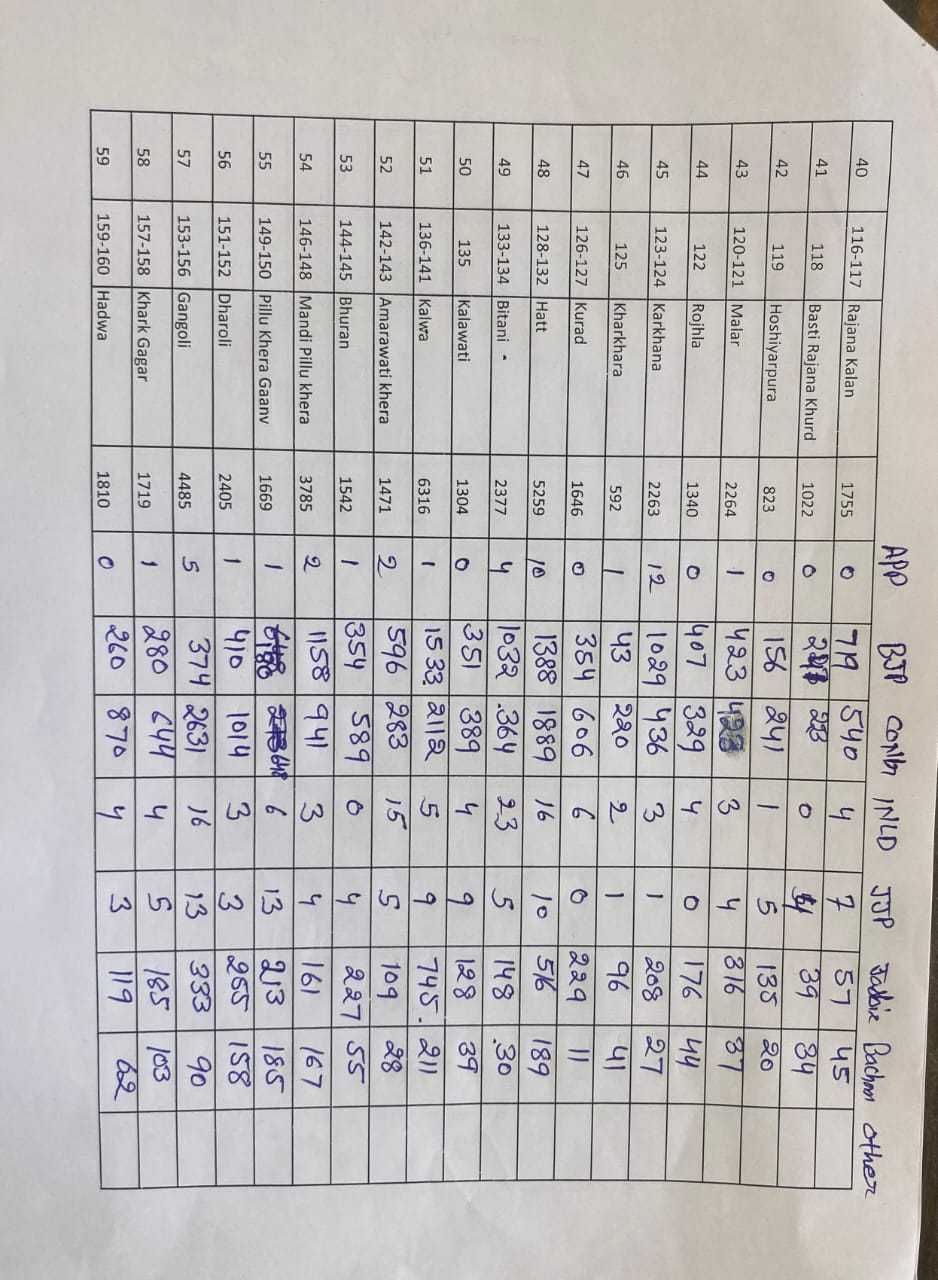 APP BJP CONG INLD JJP Bachan other
40 116-117 Rajana Kalan 1755 0 719 540 4 7 57 45
41 118 Basti Rajana Khurd 1022 0 0 39 34
42 119 Hoshiyarpura 823 0 156 241 1 5 135 20
43 120-121 Malar 2264 1 423 3 4 316 37
44 122 Rojhla 1340 0 407 329 4 0 176 44
45 123-124 Karkhana 2263 12 1029 436 3 1 208 27
46 125 Kharkhara 592 1 43 220 2 1 96 41
47 126-127 Kurad 1646 0 354 606 6 0 229 11
48 128-132 Hatt 5259 10 1388 1889 16 10 516 189
49 133-134 Bitani - 2377 4 1032 .364 23 5 148 .30
50 135 Kalawati 1304 0 351 389 4 9 128 39
51 136-141 Kalwa 6316 1 1533 2112 5 9 745. 211
52 142-143 Amarawati khera 1471 2 596 283 15 5 109 28
53 144-145 Bhuran 1542 1 354 589 0 4 227 55
54 146-148 Mandi Pillu khera 3785 2 1158 941 3 4 161 167
55 149-150 Pillu Khera Gaanv 1669 1 648 6 13 213 185
56 151-152 Dharoli 2405 1 410 1014 3 3 265 158
57 153-156 Gangoli 4485 5 374 2631 16 13 333 90
58 157-158 Khark Gagar 1719 1 280 644 4 5 185 103
59 159-160 Hadwa 1810 0 260 870 4 3 119 62